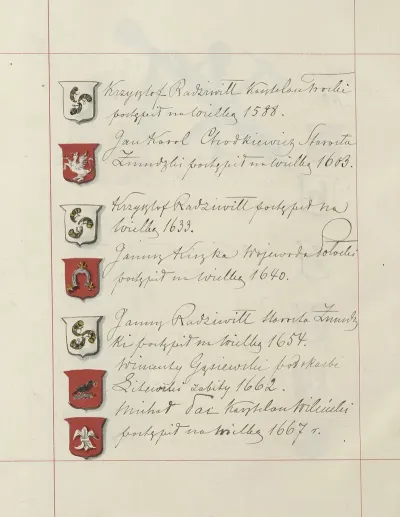 Krzysztof Radziwiłł Kasztelan Trocki
postąpił na wielką 1588.
Jan Karol Chodkiewicz Starosta
Żmudzki postąpił na wielką 1603.
Krzysztof Radziwiłł postąpił na
wielką 1633.
Janusz Kiszka Wojewoda Połocki
postąpił na wielką 1640.
Janusz Radziwiłł Starosta Żmudz
ki postąpił na wielką 1654.
Wincenty Gąsiewski podskarbi
Litewski zabity 1662.
Michał Pac Kasztelan Wileński
postąpił na wielką 1667 r.